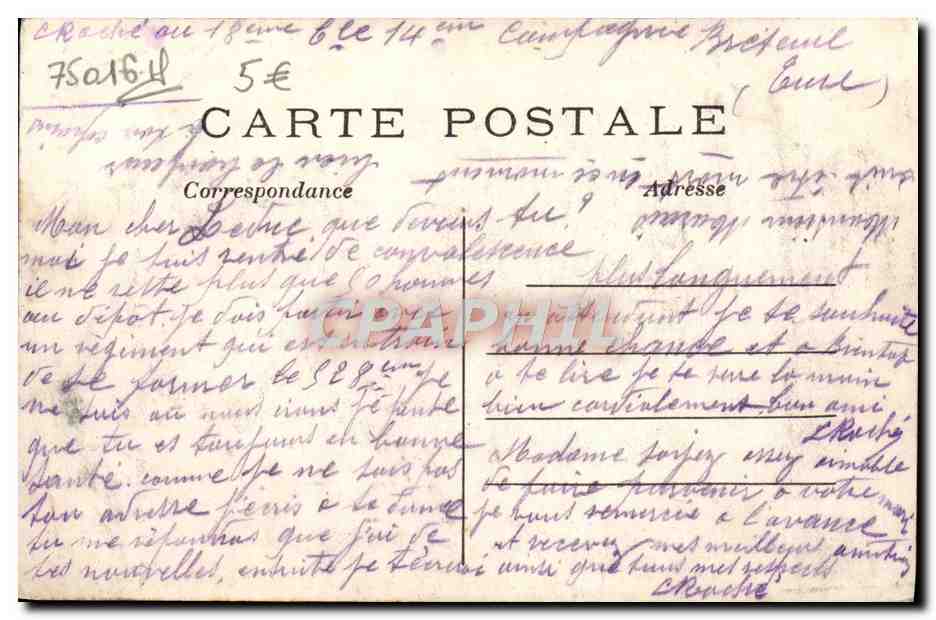 CRoché au 18eme Cie 14em Compagnie Breteuil
(Eure)
75016 H 5€
CARTE POSTALE
Correspondance
Adresse
Mon cher Leduc que deviens tu ?
moi je suis rentré de convalescence
il ne reste plus que hommes
au dépôt. je dois partir avec
un régiment qui est en train
de se former le 328em je
ne sais où nous irons j'espère
que tu es toujours en bonne
santé. comme je ne sais pas
ton adresse j'écris à ta dame
tu me répondras que j'ai de
tes nouvelles, ensuite je t'écrirai
plus longuement
en attendant je te souhaite
bonne chance et à bientôt
à te lire je te serre la main
bien cordialement ton ami
CRoché
Madame soyez assez aimable
de faire parvenir à votre mari
je vous remercie à l'avance
et recevez mes meilleurs amitiés
ainsi que tous mes respects
CRoché
CPAPHIL